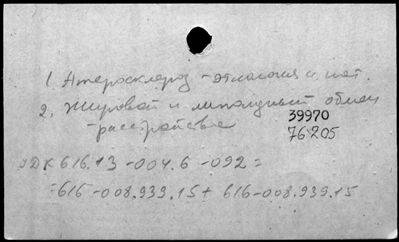 1. Атеросклероз - этиология и пат.
2. Жировой и липоидный обмен
39970
- расстройства
76205
УДК 616.13-004.6-092=
=616-008.939.15+616-008.939.15